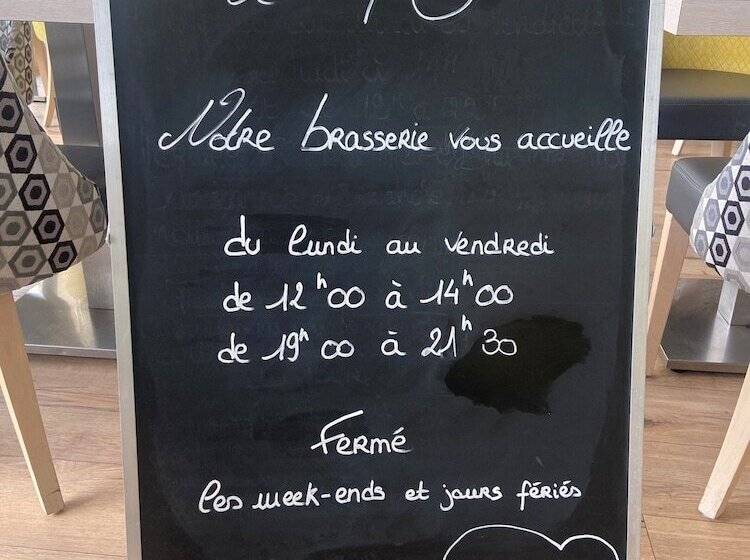 Notre brasserie vous accueille
du lundi au vendredi
de 12h00 à 14h00
de 19h00 à 21h30
Fermé
les week-ends et jours fériés